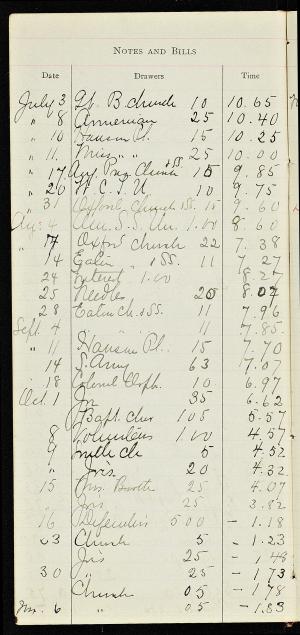 NOTES AND BILLS
Date Drawers Time
July 3 B. Church 10 10.65
" 8 Armenian 25 10.40
" 10 Hanson Pl. 15 10.25
" 11 Miss " " 25 10.00
" 17 Church + SS. 15 9.85
" 20 W. C. T. U. 10 9.75
" 31 Oxford Church SS. 15 9.60
Aug. 4 Am. S. S. Un. 1.00 8.60
" 7 Oxford Church 22 7.38
14 Eatin " SS. 11 7.27
24 Interest 1.00 8.27
25 Needles 20 8.07
28 Eatin Ch. + SS. 11 7.96
Sept. 4 " " 11 7.85
" 11 Hanson Pl. 15 7.70
14 S. Army 63 7.07
" 18 Colored Orph. 10 6.97
Oct. 1 35 6.62
Bapt. Ch 105 5.57
8 Volunteers 1.00 4.57
9 Ch 5 4.52
" 20 4.32
15 Mrs. Booth 25 4.07
25 3.82
16 Defenders 500 - 1.18
23 Church 5 - 1.23
25 - 1.48
30 " 25 - 1.73
Church 05 - 1.78
Nov. 6 " 05 - 1.83